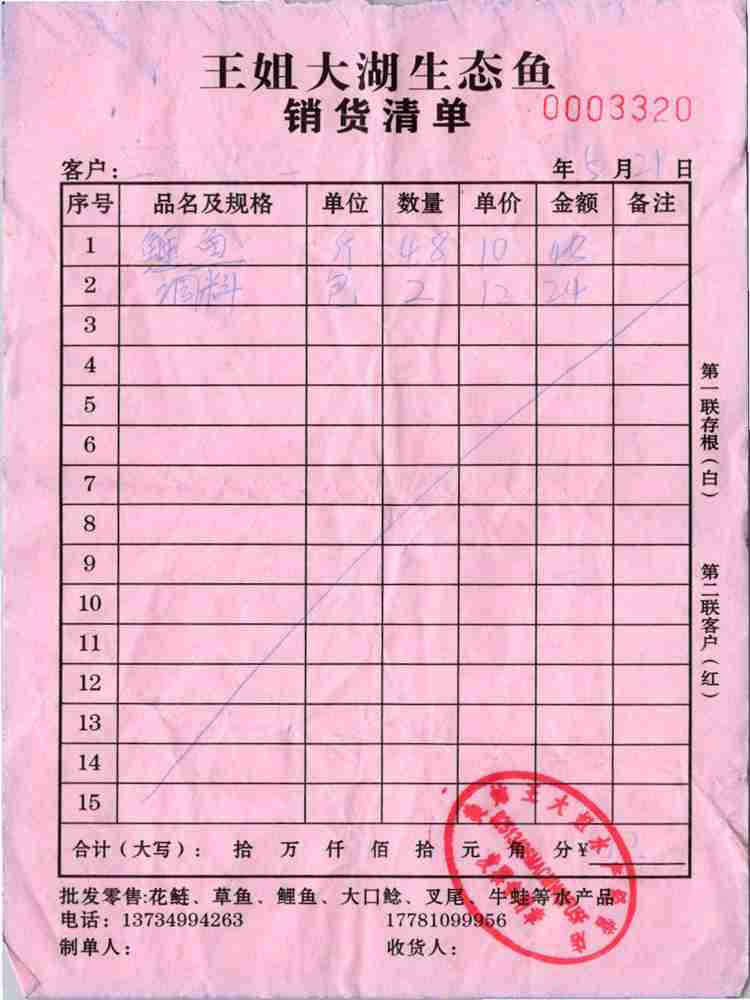 王姐大湖生态鱼
销货清单 0003320
客户： 年 5 月 21 日
序号 品名及规格 单位 数量 单价 金额 备注
1 鲢鱼 斤 48 10
2 调料 包 2 12 24
3
4
5
6
7
8
9
10
11
12
13
14
15
合计（大写）： 拾 万 仟 佰 拾 元 角 分¥
批发零售:花鲢、草鱼、鲤鱼、大口鲶、叉尾、牛蛙等水产品
电话：13734994263 17781099956
制单人： 收货人：
第一联存根（白）
第二联客户（红）